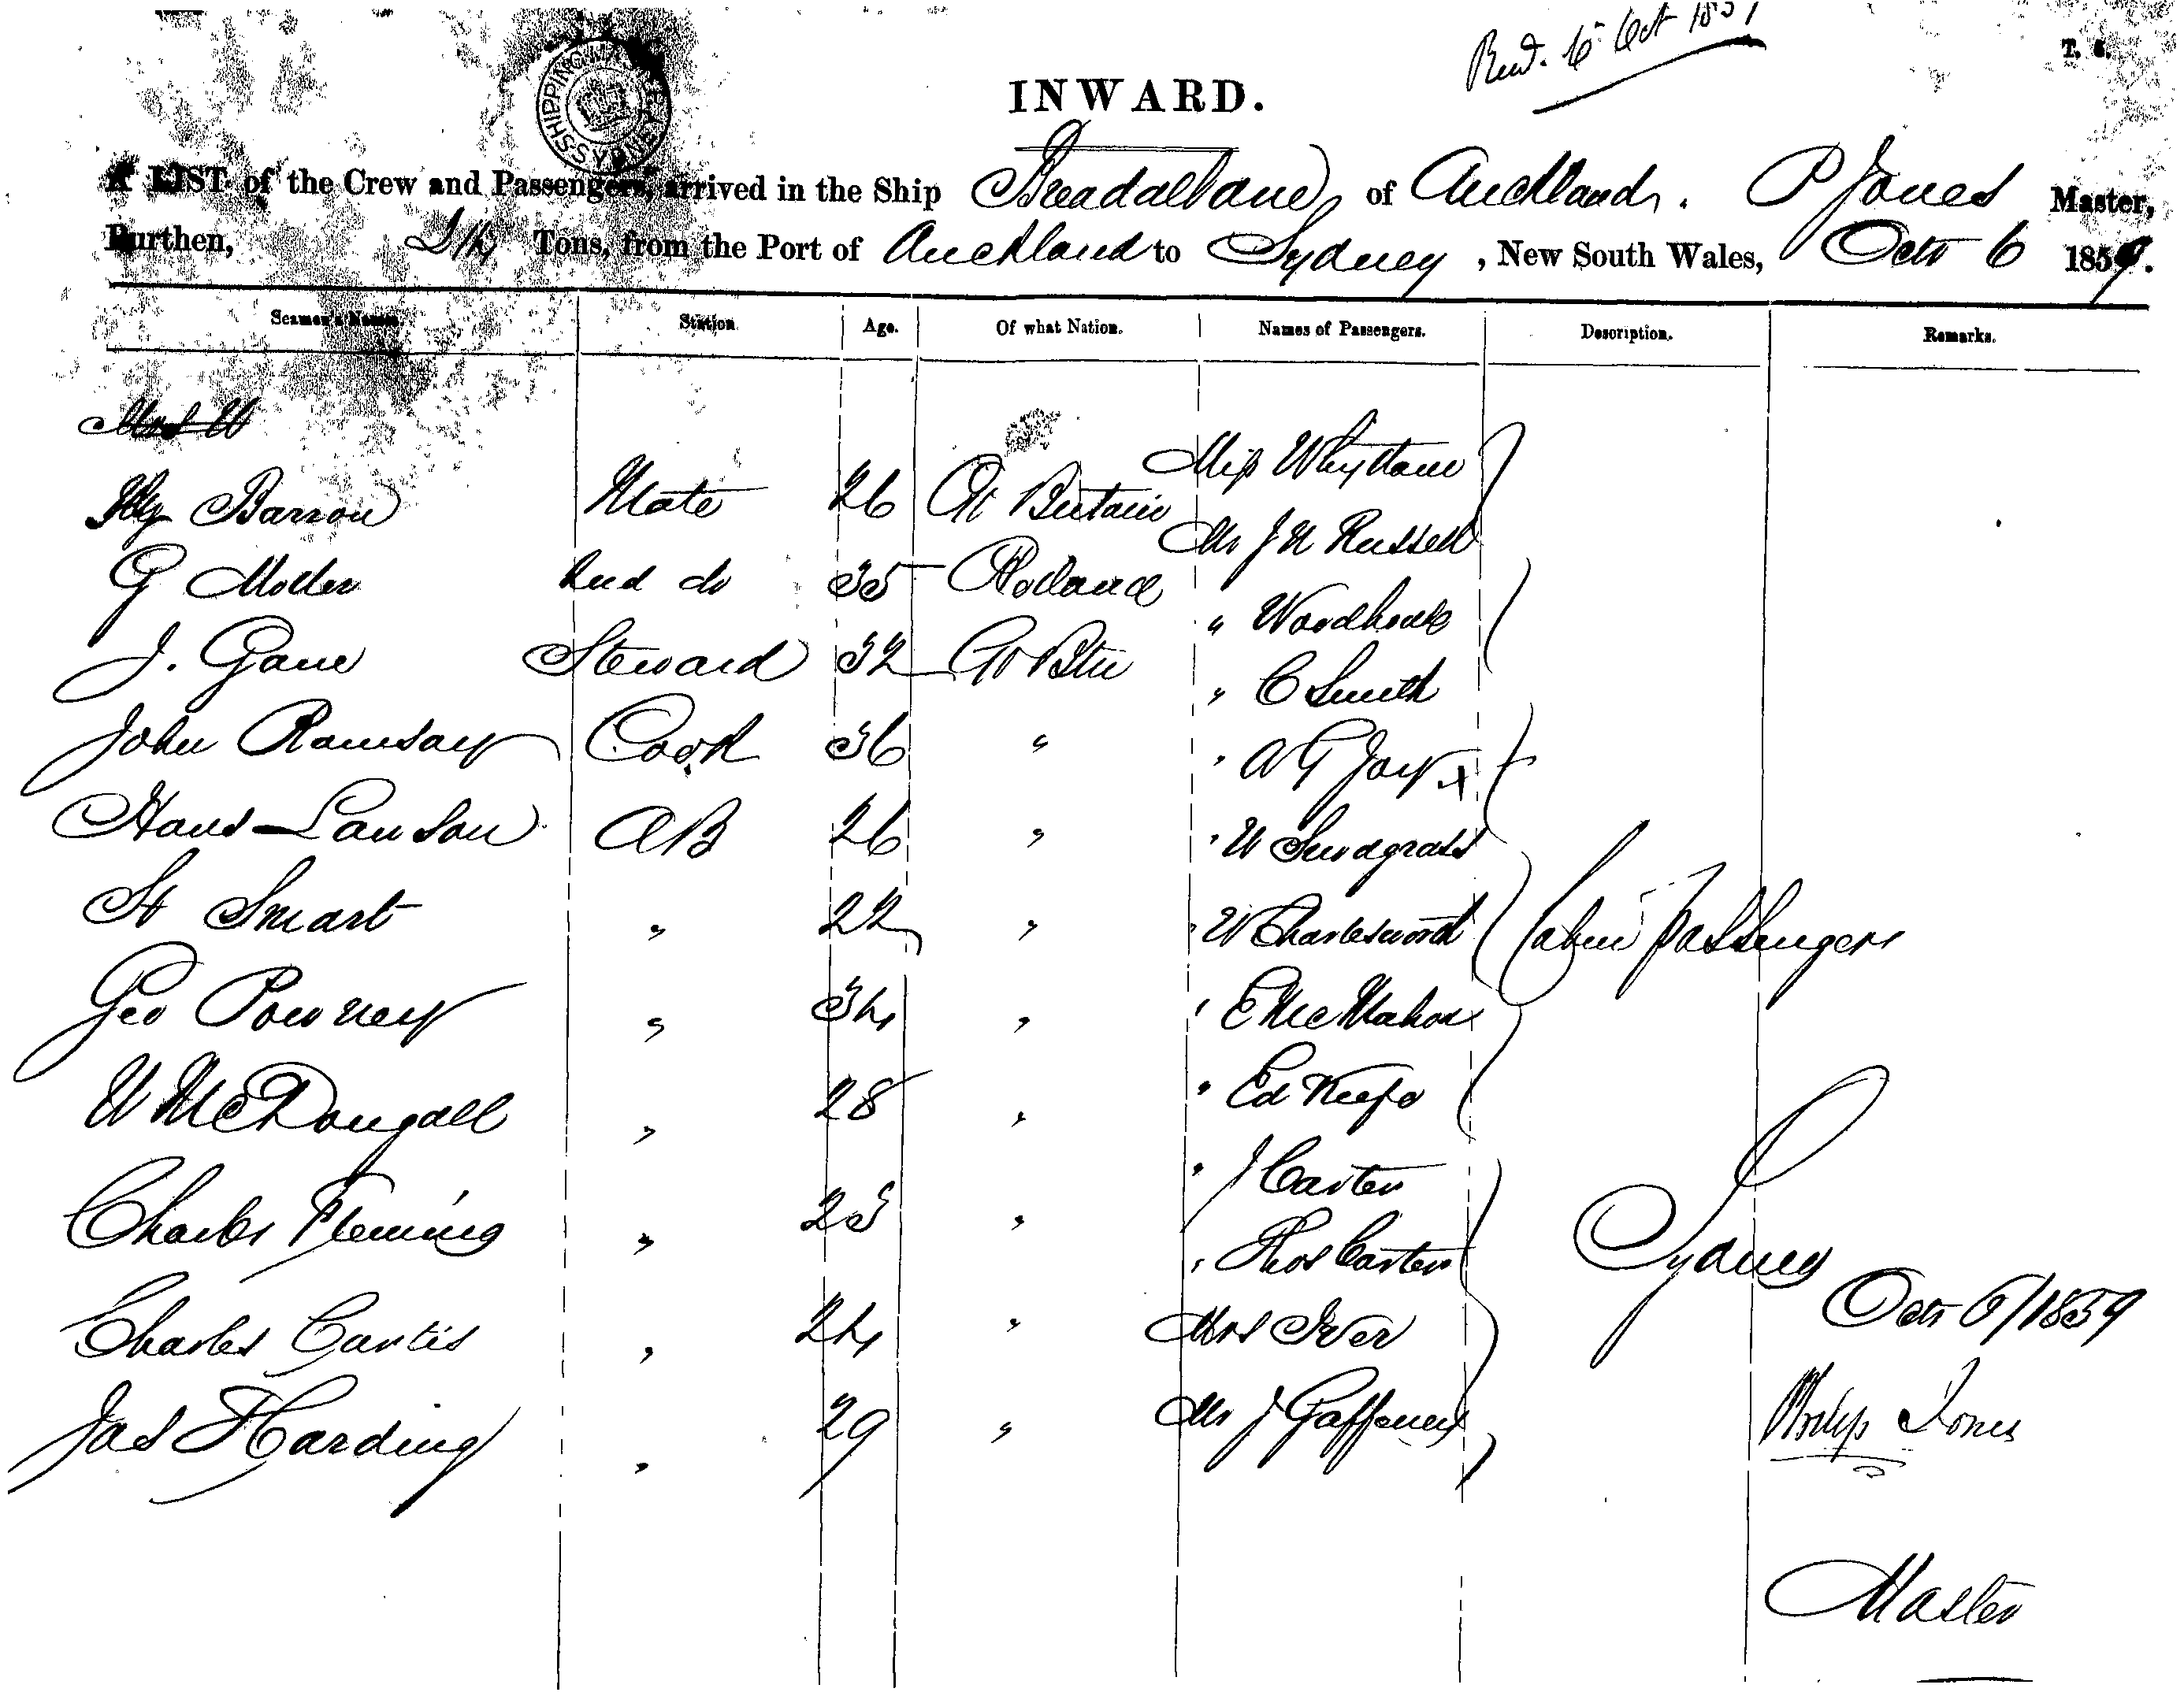 Recd. 6 Oct 1859
T. 6.
SHIPPING MASTERS SYDNEY
INWARD.
A LIST of the Crew and Passengers, arrived in the Ship Breadalbane, of Auckland. P Jones Master,
Burthen, Tons, from the Port of Auckland to Sydney, New South Wales, Octr 6 1859.
Seamen's Names. Station Age. Of what Nation. Names of Passengers. Description. Remarks.
Miss Whyttam
Hy Barron Mate 26 Gt Britain
Mr J W Russell
G Moller 2nd do 35 Holland
" Woodhouse
J. Gane Steward 32 Gt Btn
" C Smith
John Ramsay Cook 36 "
" A G Jay x
Hans Lawson AB 26 "
" W Snodgrass
St Smart " 22 "
" W Charlesworth Cabin Passengers
Geo Powney " 34 "
" E McMahon
W McDougall " 28 "
" Ed Keefe
" J Carter
Charles Fleming " 23 "
" Thos Carter
Sydney
Octr 6/1859
Charles Curtis " 24 "
Mrs Iver
Jas Harding " 29 "
Mr J Gaffeney
Philip Jones
Master